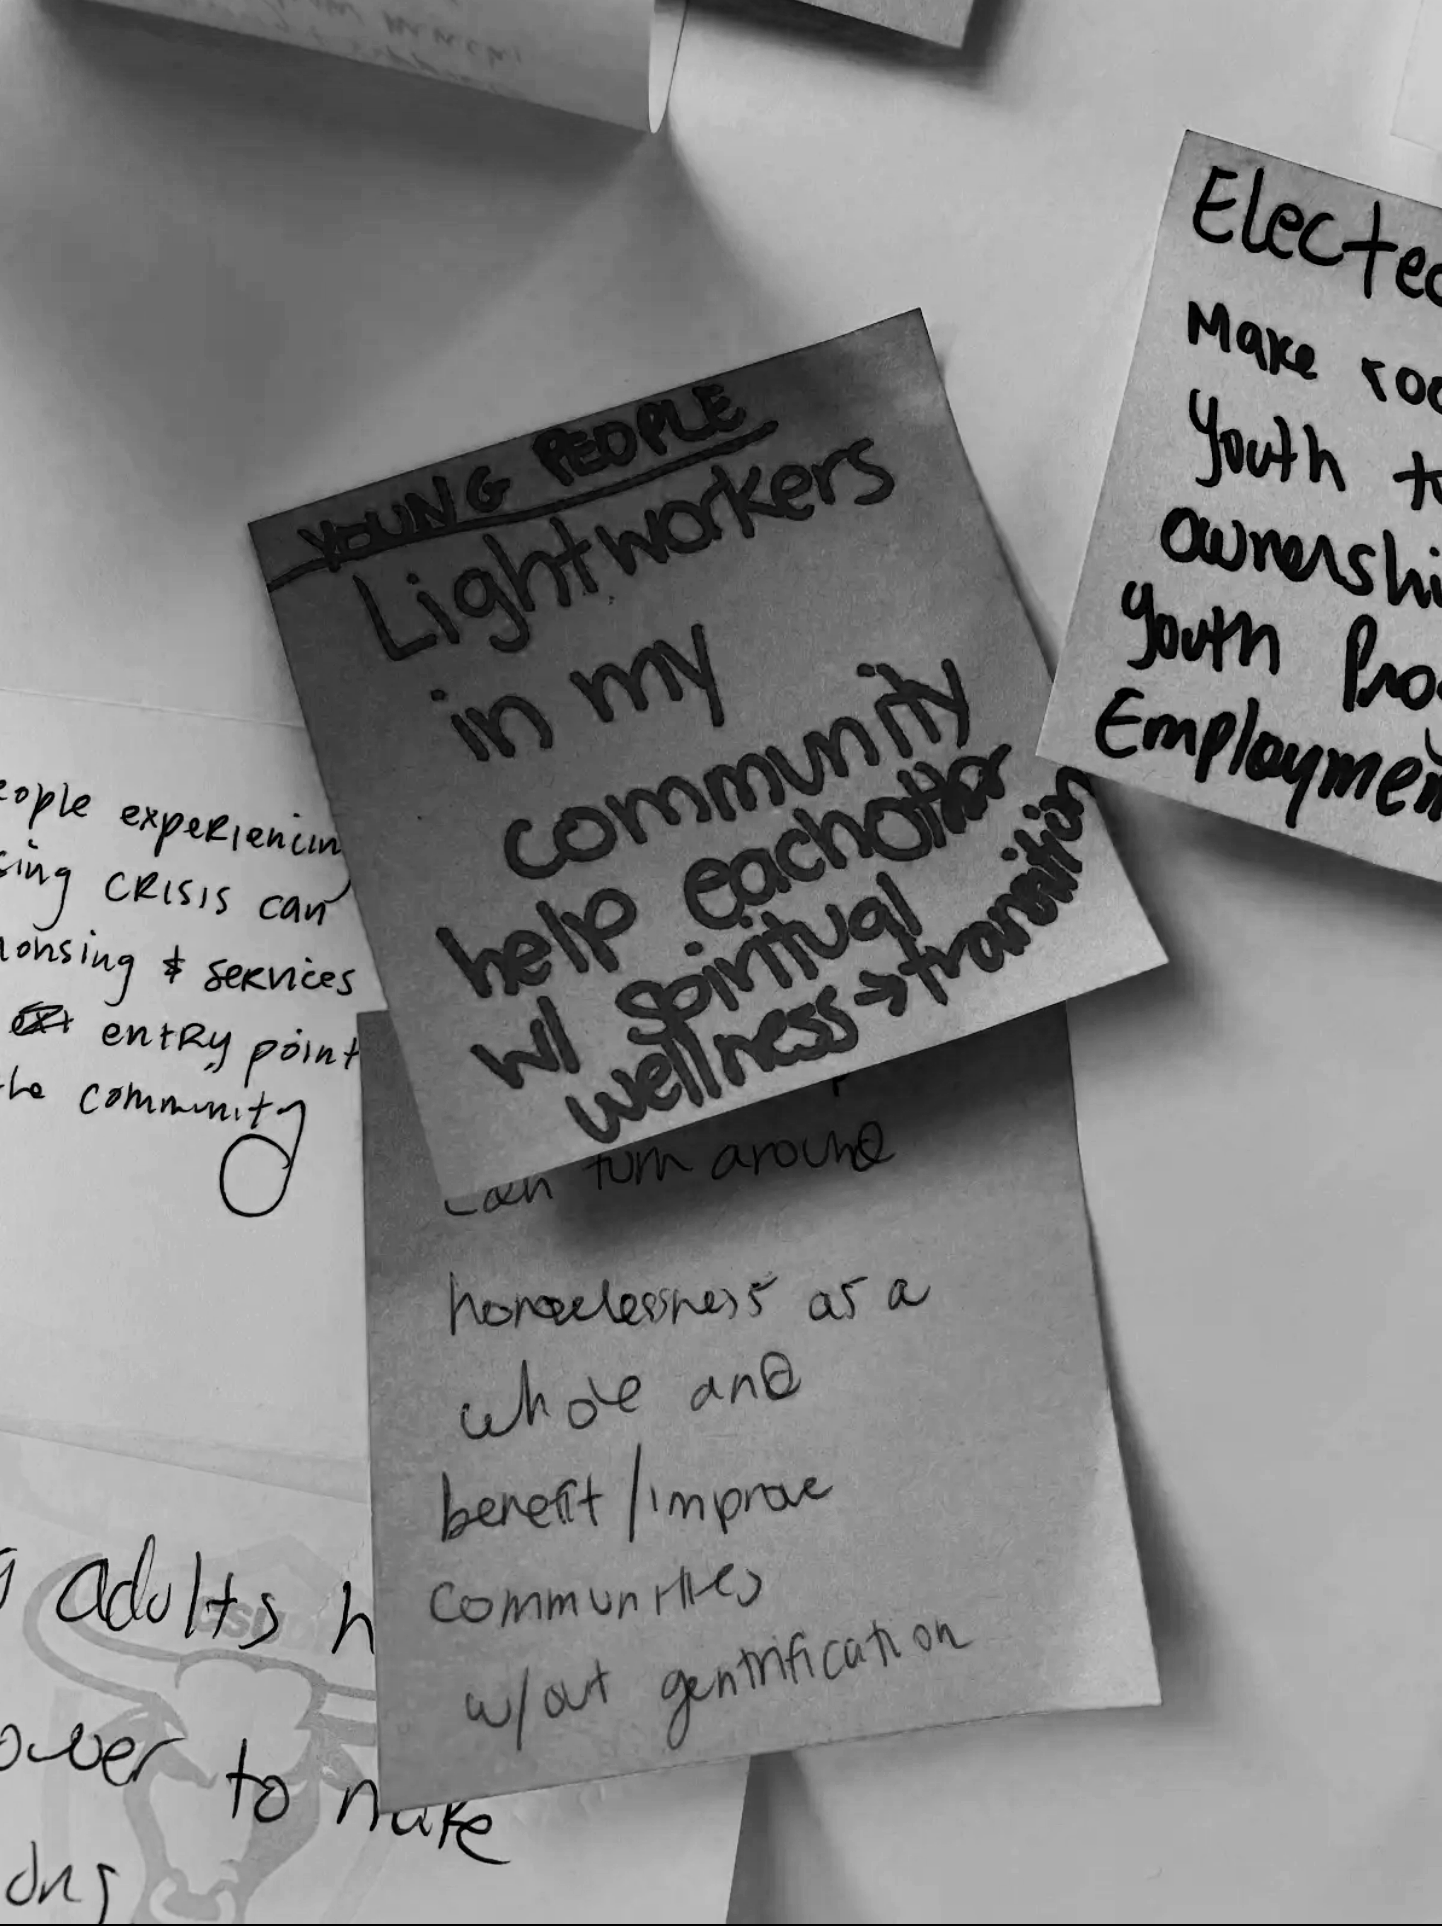 YOUNG PEOPLE
Lightworkers
in my
community
help eachother
w/ spiritual
wellness → transition
Elected
Make roo
Youth to
ownershi
Youth Pro
Employmen
eople experiencin
sing CRISIS can
housing & services
entry point
the community
can turn around
homelessness as a
whole and
benefit/improve
communities
w/out gentrification
g adults h
ower to make